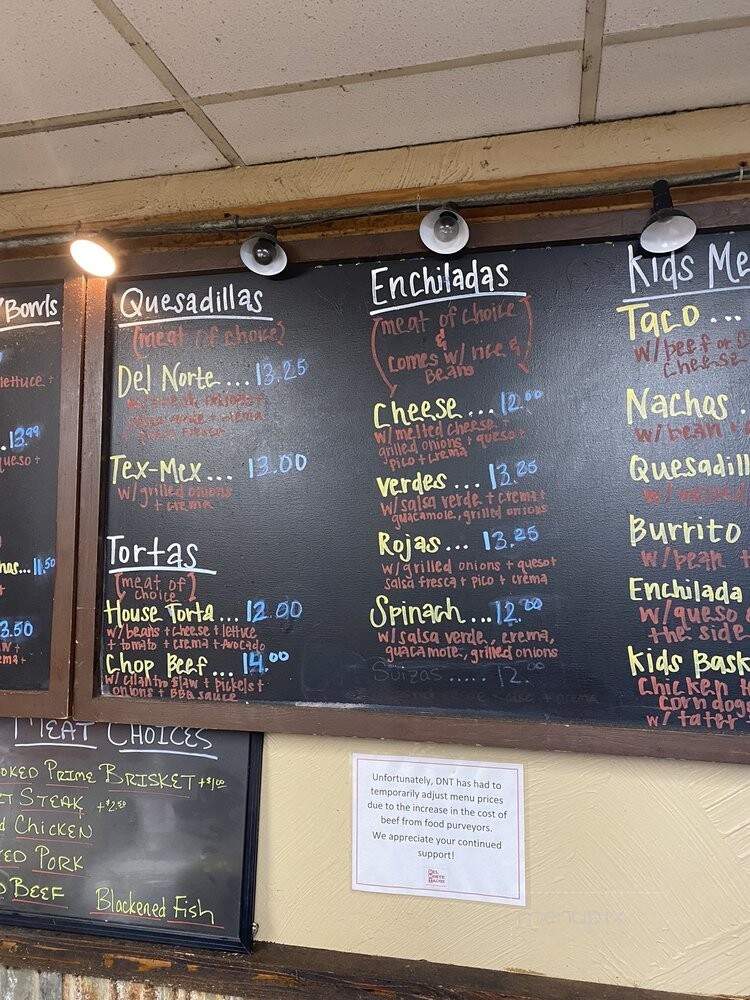 /Bowls
lettuce +
. 13.99
queso +
... 11.50
3.50
Quesadillas
(meat of choice)
Del Norte ... 13.25
Tex-Mex ... 13.00
w/ grilled onions
+ crema
Tortas
(meat of
choice)
House Torta ... 12.00
w/ beans + cheese + lettuce
+ tomato + crema + avocado
Chop Beef ... 14.00
w/ cilantro slaw + pickels +
onions + BBQ sauce
Enchiladas
(meat of choice
&
comes w/ rice &
Beans
Cheese ... 12.00
w/ melted cheese +
grilled onions + queso +
pico + crema
Verdes ... 13.25
w/ salsa verde + crema +
guacamole, grilled onions
Rojas ... 13.25
w/ grilled onions + queso +
salsa fresca + pico + crema
Spinach ... 12.00
w/ salsa verde, crema,
guacamole, grilled onions
Suizas ..... 12.
Kids Me
Taco ...
w/ beef or
cheese
Nachos .
w/ bean +
Quesadill
Burrito
w/ bean +
Enchilada
w/ queso
the side
Kids Bask
Chicken
corn dog
w/ tater
Meat Choices
oked Prime Brisket +$1.00
t Steak +$2.50
d Chicken
ed Pork
d Beef
Blackened Fish
Unfortunately, DNT has had to
temporarily adjust menu prices
due to the increase in the cost of
beef from food purveyors.
We appreciate your continued
support!
DEL
NORTE
TACOS
menupix